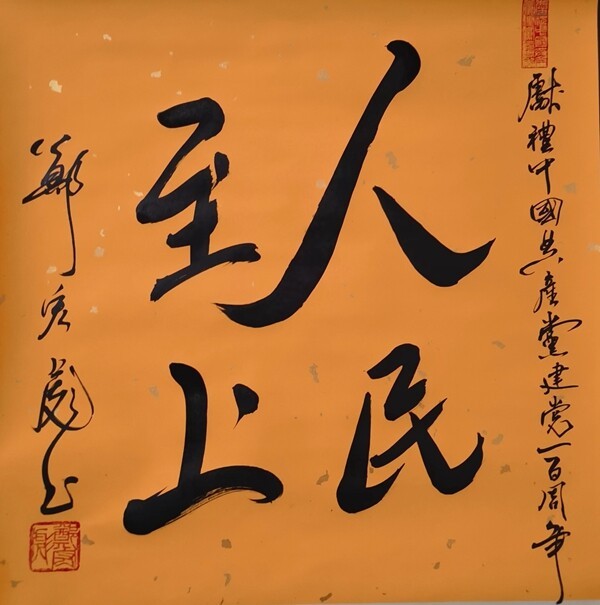 獻禮中國共產黨建黨一百周年
人民
至上
鄭